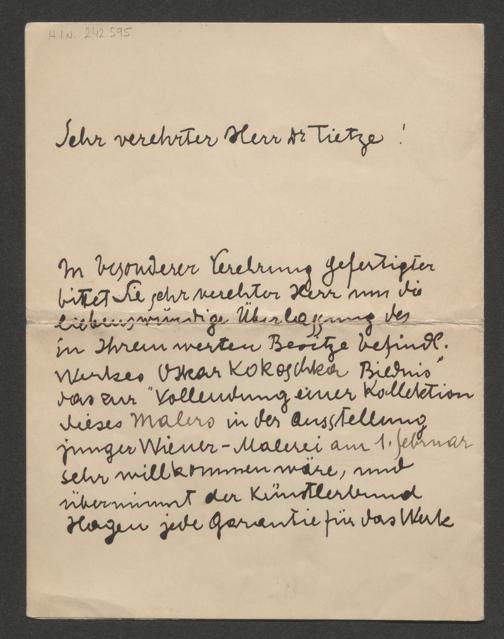 H.I.N. 242.595
Sehr verehrter Herr Dr Tietze !
In besonderer Verehrung gefertigter
bittet Sie sehr verehrter Herr um die
liebenswürdige Überlassung des
in Ihrem werten Besitze befindl.
Werkes Oskar Kokoschka Bildnis"
das zur "Vollendung einer Kollektion
dieses Malers in der Ausstellung
junger Wiener-Malerei am 1. Februar
sehr willkommen wäre, und
übernimmt der Künstlerbund
Hagen jede Garantie für das Werk